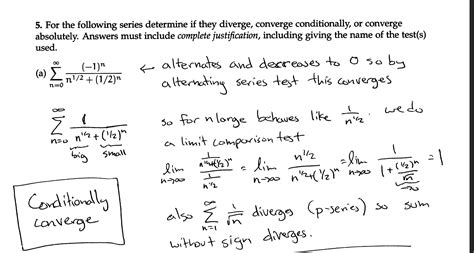 5. For the following series determine if they diverge, converge conditionally, or converge
absolutely. Answers must include complete justification, including giving the name of the test(s)
used.
(a) ∞∑n=0 (-1)^n / (n^{1/2} + (1/2)^n) ← alternates and decreases to 0 so by
alternating series test this converges
∞∑n=0 1 / (n^{1/2} + (1/2)^n) so for n large behaves like 1/n^{1/2}. we do
big small a limit comparison test
lim n→∞ (1/(n^{1/2}+(1/2)^n)) / (1/n^{1/2}) = lim n→∞ n^{1/2} / (n^{1/2}+(1/2)^n) = lim n→∞ 1 / (1 + (1/2)^n/√n) = 1
→0
Conditionally
converge
also ∞∑n=1 1/√n diverges (p-series) so sum
without sign diverges.